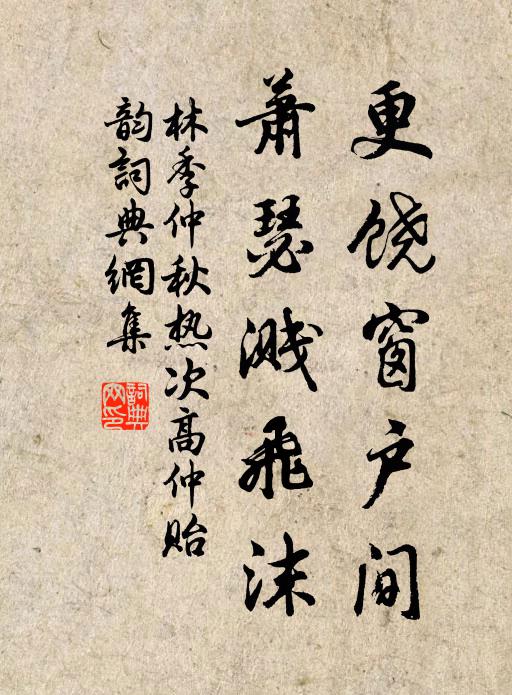 更饶窗户间
萧瑟溅飞沫
林季仲秋热次高仲贻
韵詞典網集
詞典网印